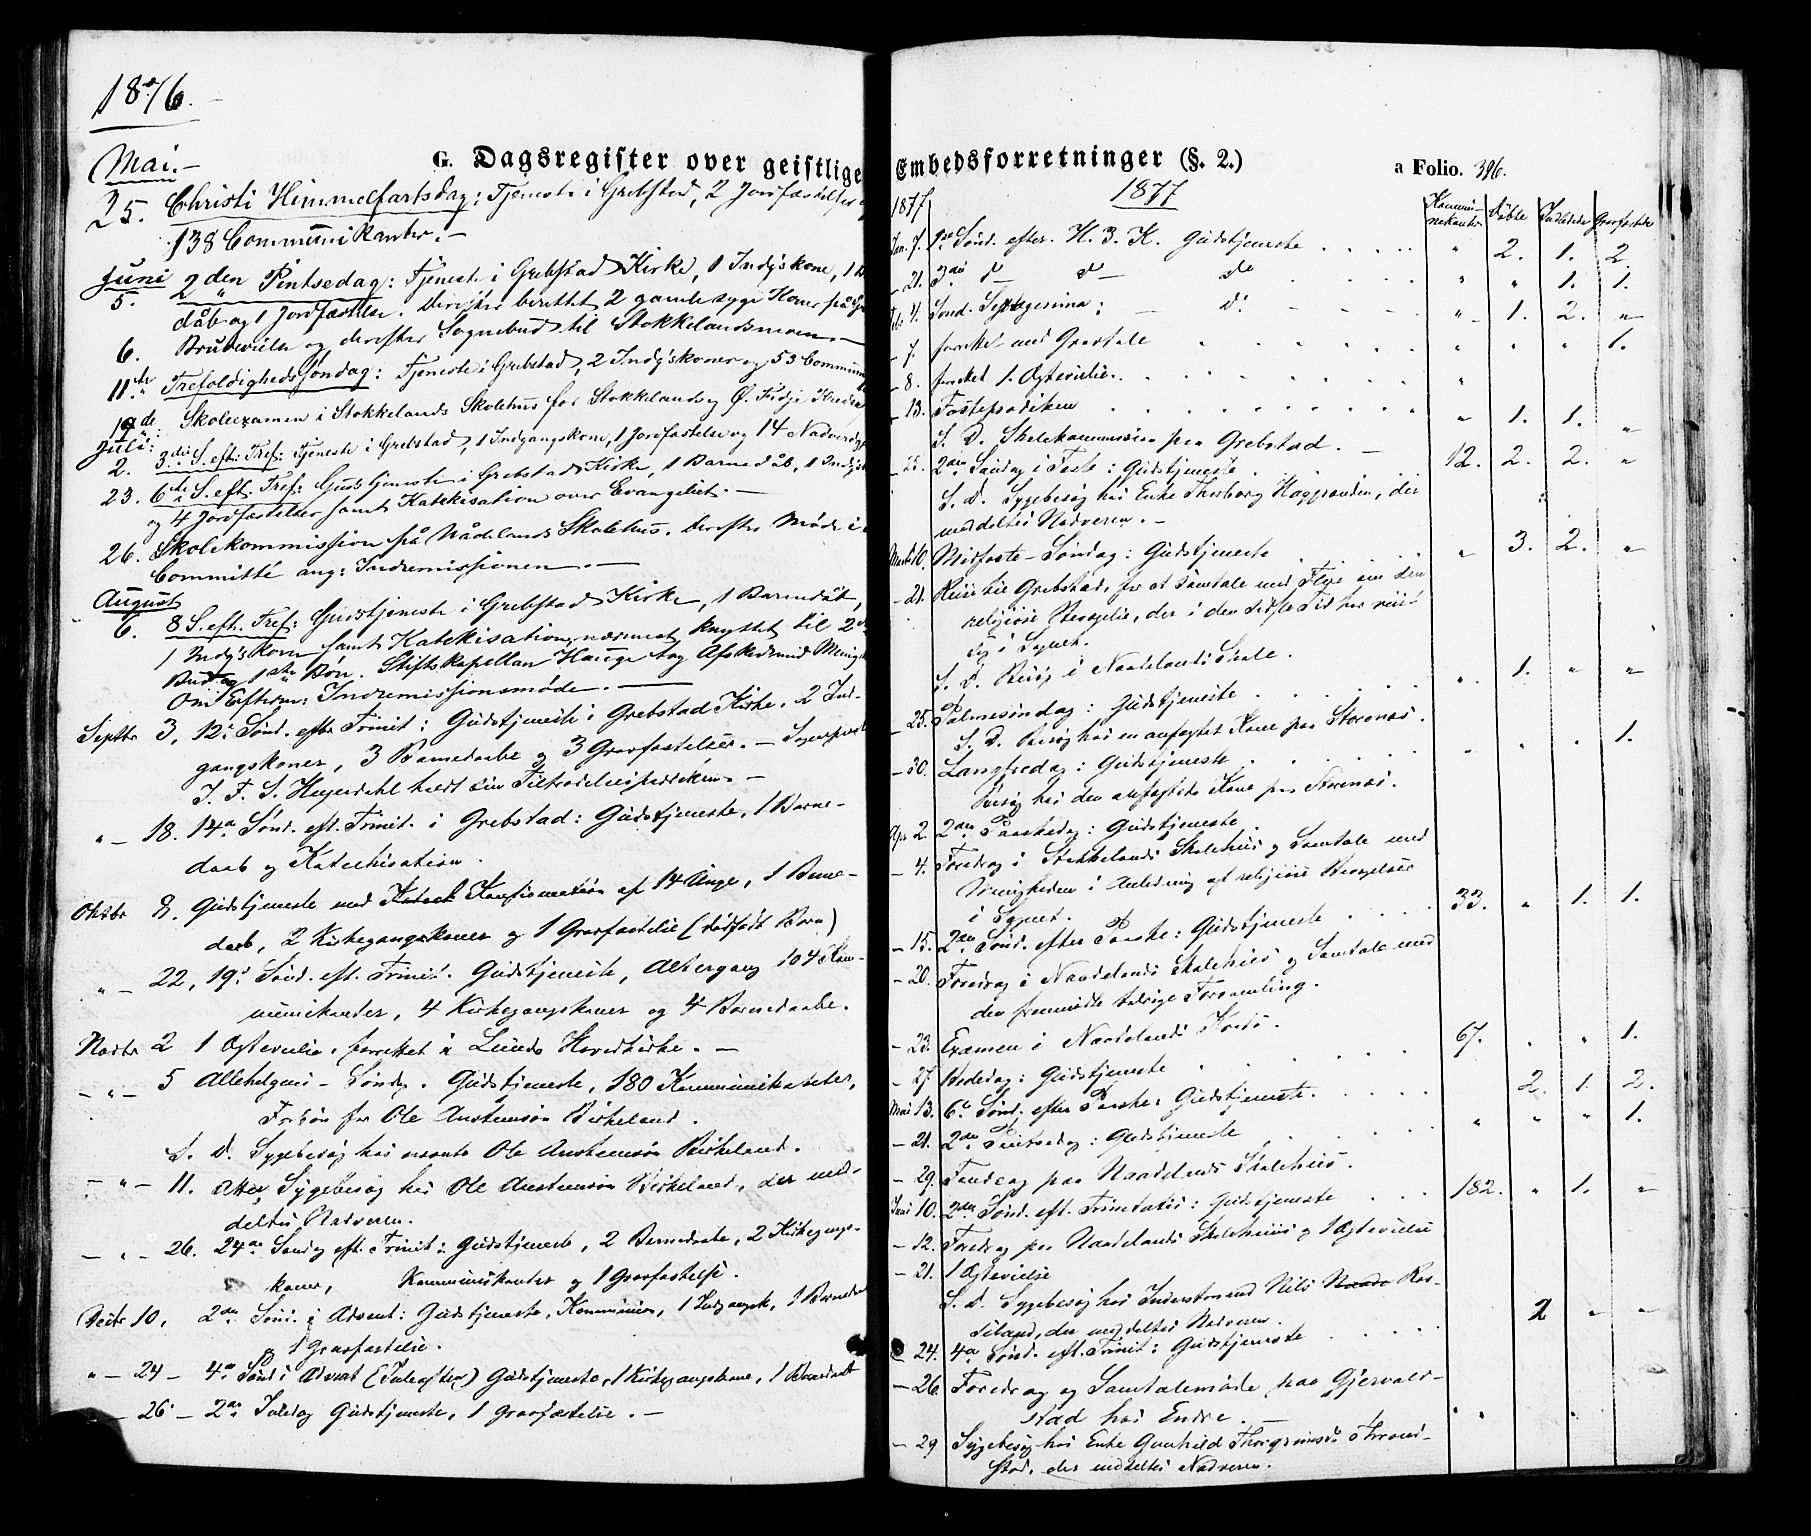 1876.
Mai.
G. Dagsregister over geistlige
25. Christi Himmelfartsdag: Tjeneste i Grebstad, 2 Jordfæstelser
138 Communikanter.
Juni 2den Pintsedag: Tjeneste i Grebstad Kirke, 1 Indgskone, 1
5. dåb og 1 Jordfæstelse. Derefter berettet 2 gamle syge Koner på
6. Brudevielse og derefter Sognebud til Stokkelandsmoen
11te Trefoldighedssøndag: Tjeneste i Grebstad, 2 Indgskoner og 53 Commun
Skoleexamen i Stokkelands Skolehus for Stokkelands og Ø. Kreds
Juli:
2. 3die S. eft: Tref: Tjeneste i Grebstad, 1 Indgangskone, 1 Jordfæstelse og 14 Nadverdg
23. 6te S. eft. Tref: Gudstjeneste i Grebstad Kirke, 1 Barnedåb, 1 Indgsk
og 4 Jordfæstelser samt Katekisation over Evangeliet.
26. Skolekommission på Nådelands Skolehus. Derefter Møde i
Committé ang: Indremissionen.
August
6. 8 S. eft. Tref: Gudstjeneste i Grebstad Kirke, 1 Barnedåb,
1 Indgskone samt Katekisation nærmest knyttet til 2det
Bud og 1ste Bøn. Stiftskapellan Hauge tog Afsked med Menigh
Om Efterm: Indremissionsmøde.
Septbr 3, 12t Sønd. efter Trinit: Gudstjeneste i Grebstad Kirke, 2 Ind-
gangskoner, 3 Barnedaabe og 3 Gravfæstelser. – Sognepræst
J. F. S. Heyerdahl holdt sin Tiltrædelsesprædiken.
" – 18. 14a Sønd. eft. Trinit. i Grebstad: Gudstjeneste, 1 Barne-
daab og Katechisation.
Oktbr 8. Gudstjeneste med Konfirmation af 14 Unge, 1 Barne-
daab, 2 Kirkegangskoner og 1 Gravfæstelse (dødfødt Barn)
" – 22, 19d Sønd. eft. Trinit. Gudstjeneste, Altergang 104 Kom-
munikanter, 4 Kirkegangskoner og 4 Barnedaabe.
Novbr 2 1 Ægtevielse, forrettet i Lunds Hovedkirke. –
– " – 5 Allehelgens-Søndag. Gudstjeneste, 180 Kommunikanter,
Forbøn for Ole Austensøn Birkeland.
S. D. Sygebesøg hos nævnte Ole Austensøn Birkeland.
– " – 11. Atter Sygebesøg hos Ole Austensøn Birkeland, der med-
deltes Nadveren.
– " – 26. 24de Søndag eft. Trinit: Gudstjeneste, 2 Barnedaabe, 2 Kirkegangs-
koner, Kommunikanter og 1 Gravfæstelse.
Decbr 10, 2den Sønd. i Advent: Gudstjeneste, Kommunion, 1 Indgangsk, 1 Barnedaab
1 Gravfæstelse.
" – 24 – 4de Sønd i Advent (Juleaften) Gudstjeneste, 1 Kirkegangskone, 1 Barnedaab
– 26 – 2den Juledag Gudstjeneste, 1 gravfæstelse. –
Embedsforretninger (§. 2.)
a Folio. 396.
1877 1877
Kommunikanter Døbte Indledede Gravfæstede
Jan. 7. 1ste Sønd. efter H. 3. K. Gudstjeneste . . . . " 2. 1. 2.
– 21. 3die d – do – do " " 1. 1.
Feb 4. Sønd. Septuagesima: – do " 1. 2. "
– 7. forrettet med Gravtale " " " 1.
– 8. forrettet 1. Ægtevielse. "
– 13. Fasteprædiken " 1. 1. "
S. D. Skolekommission paa Grebstad. –
– 25. 2den Søndag i Faste: Gudstjeneste 12. 2. 2. "
S. D. Sygebesøg hos Enke Thorborg Haugsanden, der
meddeltes Nadveren. –
Marts 10. Midfaste-Søndag: Gudstjeneste " 3. 2. "
– 21. Reise til Grebstad, for at samtale med Flere om den
religiøse Bevægelse, der i den sidste Tid har reist
sig i Sognet.
S. D. Besøg i Naadelands Skole.
– 25. Palmesøndag: Gudstjeneste " 1. " "
S. D. Besøg hos en anfægtet Kone paa Storenæs.
– 30. Langfredag: Gudstjeneste " " " 1.
Besøg hos den anfægtede Kone paa Storenæs.
Apr 2. 2den Paaskedag: Gudstjeneste
– 4. Foredrag i Stokkelands Skolehus og Samtale med
Menigheden i Anledning af religiøse Bevægelser
i Sognet.
– 15. 2den Sønd. efter Paaske: Gudstjeneste 33. " 1. 1.
– 20. Foredrag i Naadelands Skolehus og Samtale med
den fremmødte talrige Forsamling.
– 23. Examen i Naadelands Kreds.
– 27. Bededag: Gudstjeneste 67. " " 1.
Mai 13. 6te Sønd. efter Paaske: Gudstjeneste. 2. 1. 2.
– 21. 2den Pintsedag: Gudstjeneste " " " 1.
– 29. Foredrag paa Naadelands Skolehus.
Juni 10. 2den Sønd. eft. Trinitatis: Gudstjeneste 182. " 1. "
– 12. Foredrag paa Naadelands Skolehus og 1 Ægtevielse
– 21. 1 Ægtevielse
S. D. Sygebesøg hos Inderstemand Nils Ros-
seland, der meddeltes Nadveren.
24. 4de Sønd. eft. Trinit: Gudstjeneste 2 " "
– 26. Foredrag og Samtalemøde paa Gjervald-
stad hos Endre. –
– 29 Sygebesøg hos Enke Gunhild Thorgrimsd:
stad, der meddeltes Nadveren.